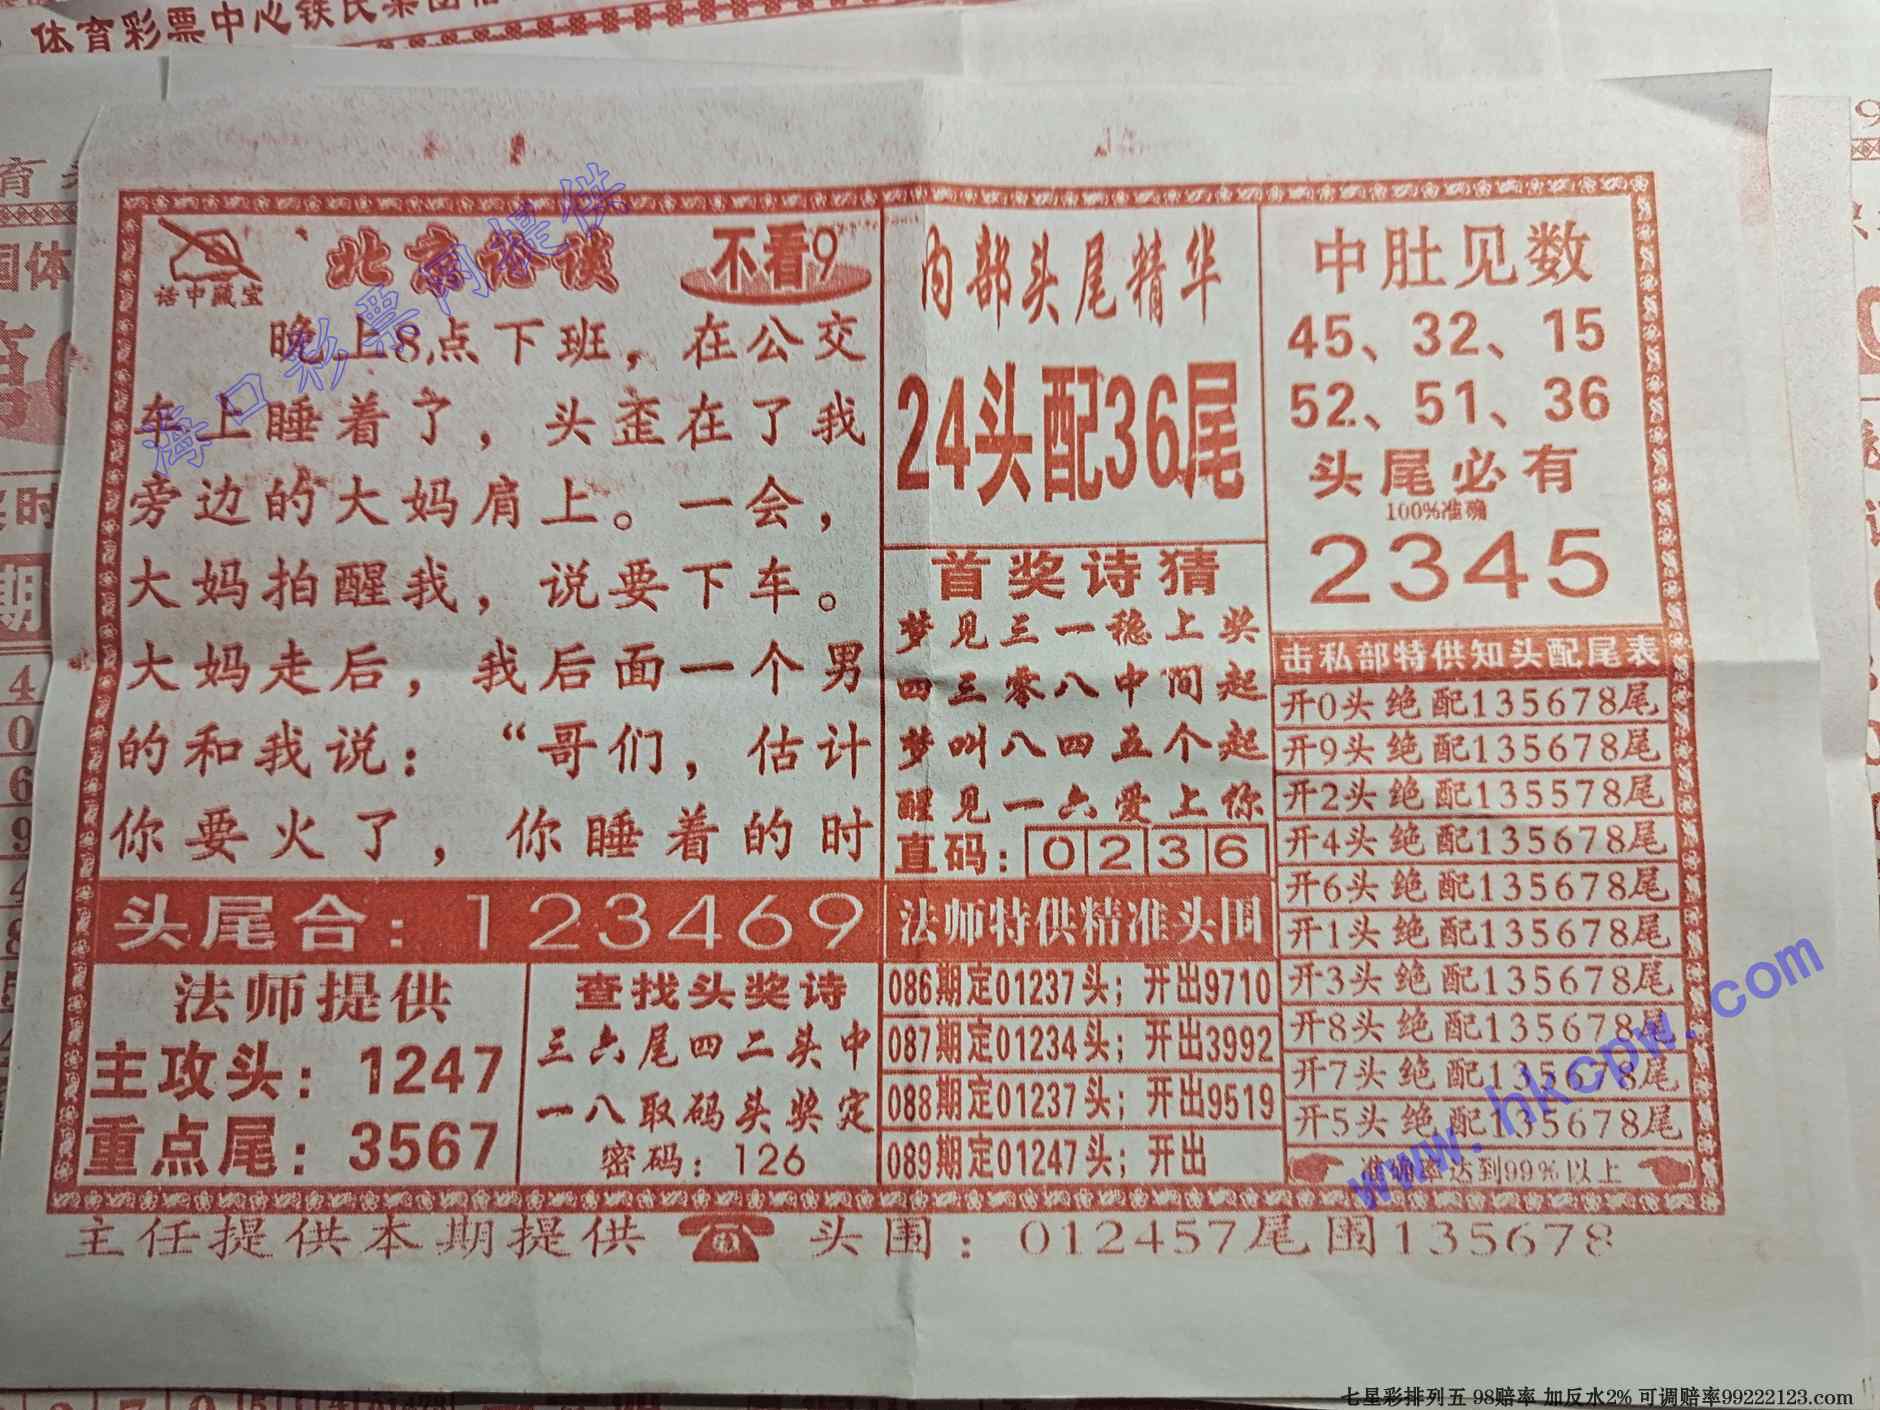 体育彩票中心铁民集团
话中藏宝
北京洽谈
不看9
晚上8点下班，在公交
车上睡着了，头歪在了我
旁边的大妈肩上。一会，
大妈拍醒我，说要下车。
大妈走后，我后面一个男
的和我说：“哥们，估计
你要火了，你睡着的时
头尾合：123469
法师提供
主攻头：1247
重点尾：3567
查找头奖诗
三六尾四二头中
一八取码头奖定
密码：126
内部头尾精华
24头配36尾
首奖诗猜
梦见三一稳上奖
四三零八中间起
梦叫八四五个起
醒见一六爱上你
直码：0236
法师特供精准头围
086期定01237头；开出9710
087期定01234头；开出3992
088期定01237头；开出9519
089期定01247头；开出
中肚见数
45、32、15
52、51、36
头尾必有
100%准确
2345
击私部特供知头配尾表
开0头绝配135678尾
开9头绝配135678尾
开2头绝配135578尾
开4头绝配135678尾
开6头绝配135678尾
开1头绝配135678尾
开3头绝配135678尾
开8头绝配135678尾
开7头绝配135678尾
开5头绝配135678尾
准确率达到99%以上
主任提供本期提供 头围：012457尾围135678
海口彩票网提供
www.hkcpw.com
七星彩排列五 98赔率 加反水2% 可调赔率99222123.com